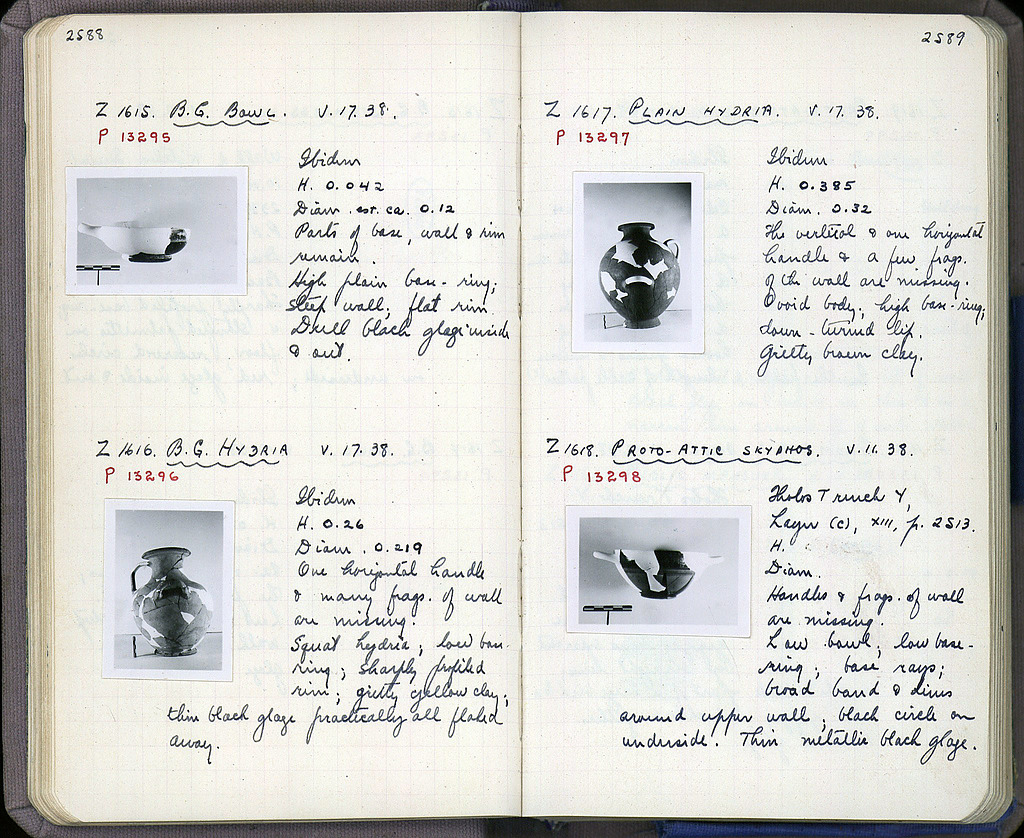 2588
Z 1615. B.G. BOWL. V.17.38.
P 13295
Ibidum
H. 0.042
Diam. est. ca. 0.12
Parts of base, wall & rim
remain.
High plain base-ring;
steep wall; flat rim.
Dull black glaze inside
& out.
Z 1616. B.G. HYDRIA V.17.38.
P 13296
Ibidum
H. 0.26
Diam. 0.219
One horizontal handle
& many frags. of wall
are missing.
Squat hydria; low base-
ring; sharply profiled
rim; gritty yellow clay;
thin black glaze practically all flaked
away.
2589
Z 1617. PLAIN HYDRIA. V.17.38.
P 13297
Ibidum
H. 0.385
Diam. 0.32
The vertical & one horizontal
handle & a few frags.
of the wall are missing.
Ovoid body; high base-ring;
down-turned lip.
Gritty brown clay.
Z 1618. PROTO-ATTIC SKYPHOS. V.11.38.
P 13298
Tholos Trench Y,
Layer (c), XIII, p. 2513.
H.
Diam.
Handles & frags. of wall
are missing.
Low bowl; low base-
ring; base rays;
broad band & lines
around upper wall; black circle on
underside. Thin metallic black glaze.